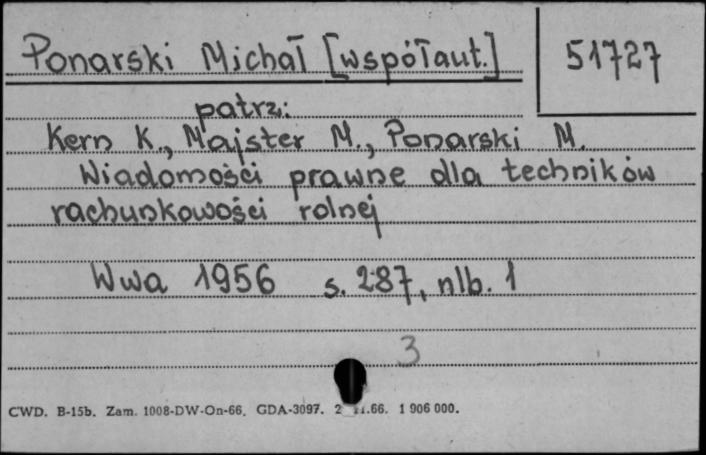 Ponarski Michał [współaut.]
51727
patrz:
Kern K., Majster M., Ponarski M.
Wiadomości prawne dla techników
rachunkowości rolnej
Wwa 1956 s. 287, nlb. 1
3
CWD. B-15b. Zam. 1008-DW-On-66. GDA-3097. 2 .66. 1 906 000.